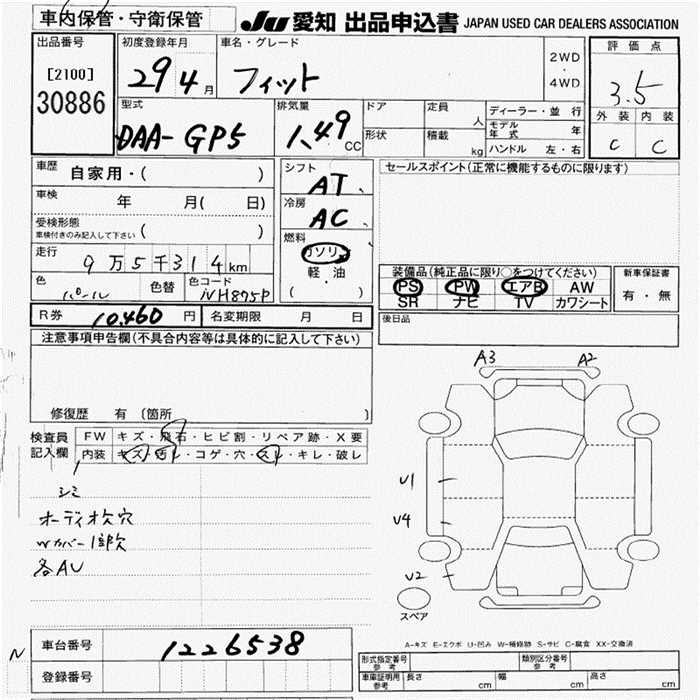 車内保管・守衛保管
JU 愛知 出品申込書 JAPAN USED CAR DEALERS ASSOCIATION
出品番号
[2100]
30886
初度登録年月
29 4月
車名・グレード
フィット
2WD
・
4WD
評価点
3.5
外装 内装
C C
型式
DAA-GP5
排気量
1.49 CC
ドア
形状
定員 人
積載 kg
ディーラー・並行
モデル年式 年
ハンドル 左・右
車歴 自家用・( )
車検 年 月( 日)
受検形態
車検付きのみ記入して下さい ( )
走行 9万5千314km
色 パール 色替 色コード NH875P
シフト
AT
冷房
AC
燃料
ガソリン
軽・油
( )
セールスポイント(正常に機能するものに限ります)
装備品(純正品に限り○をつけてください)
PS PW エアB AW
SR ナビ TV カワシート
新車保証書
有・無
R券 10,460円 名変期限 月 日
後日品
注意事項申告欄(不具合内容等は具体的に記入して下さい)
修復歴 有 (箇所 )
検査員
記入欄
FW キズ・飛石・ヒビ割・リペア跡・X要
内装 キズ・汚レ・コゲ・穴・スレ・キレ・破レ
シミ
オーディオ欠穴
Wカバー1部欠
各AU
A3 A2
U1
U4
U2
スペア
A-キズ E-エクボ U-凹み W-補修跡 S-サビ C-腐食 XX-交換済
N
車台番号 1226538
登録番号
形式指定番号 参考
類別区分番号 参考
車庫証明用 参考 長さ cm 幅 cm 高さ cm